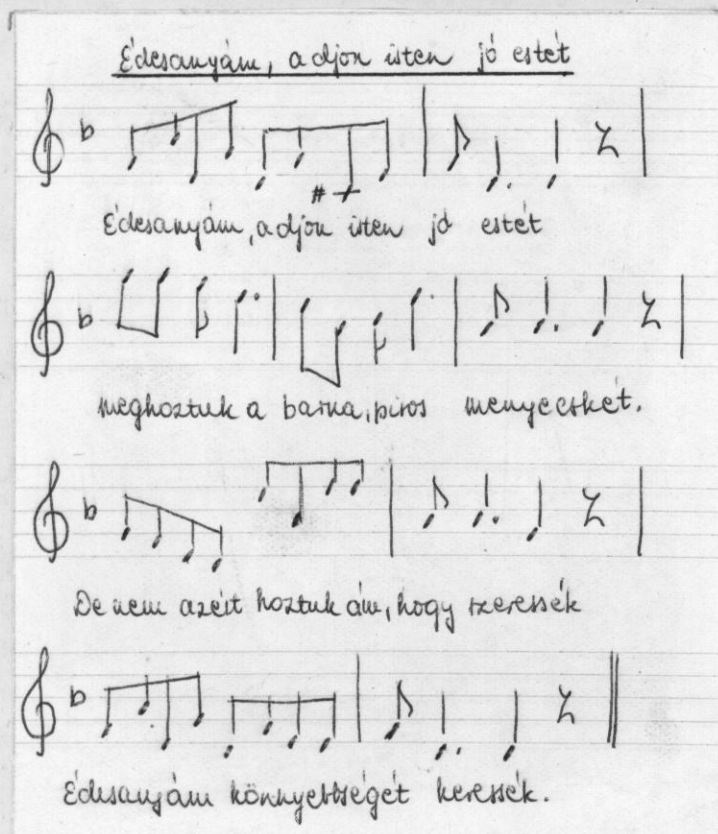 Édesanyám, adjon isten jó estét
Édesanyám, adjon isten jó estét
meghoztuk a barna, piros menyecskét.
De nem azért hoztuk ám, hogy szeressék
Édesanyám könnyebbségét keressék.